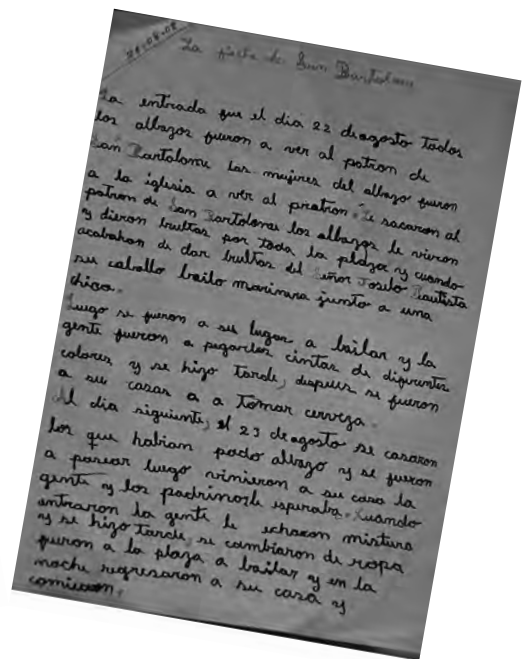 28-08-08
La fiesta de San Bartolome
La entrada fue el dia 22 de agosto todos
los albazos fueron a ver al patron de
San Bartolome Las mujeres del albazo fueron
a la iglesia a ver al pratron. Le sacaron al
patron de San Bartolome los albazos le vieron
y dieron bueltas por toda la plaza y cuando
acababan de dar bueltas del Señor Joselo Bautista
su caballo bailo marinera junto a una
chica.
Luego se fueron a su lugar a bailar y la
gente fueron a pegarles cintas de diferentes
colores y se hizo tarde, despues se fueron
a sus casas a a tomar cerveza.
Al dia siguiente, el 23 de agosto se casaron
los que habian pado albazo y se fueron
a pasear luego vinieron a su casa la
gente y los padrinosle esperaba. Cuándo
entraron la gente le echaron mistura
y se hizo tarde, se cambiaron de ropa
fueron a la plaza a bailar y en la
noche regresaron a su casa y
comieron.